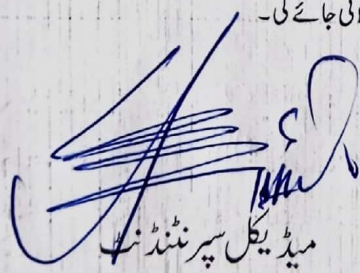 جائے گی۔
میڈیکل سپرنٹنڈنٹ